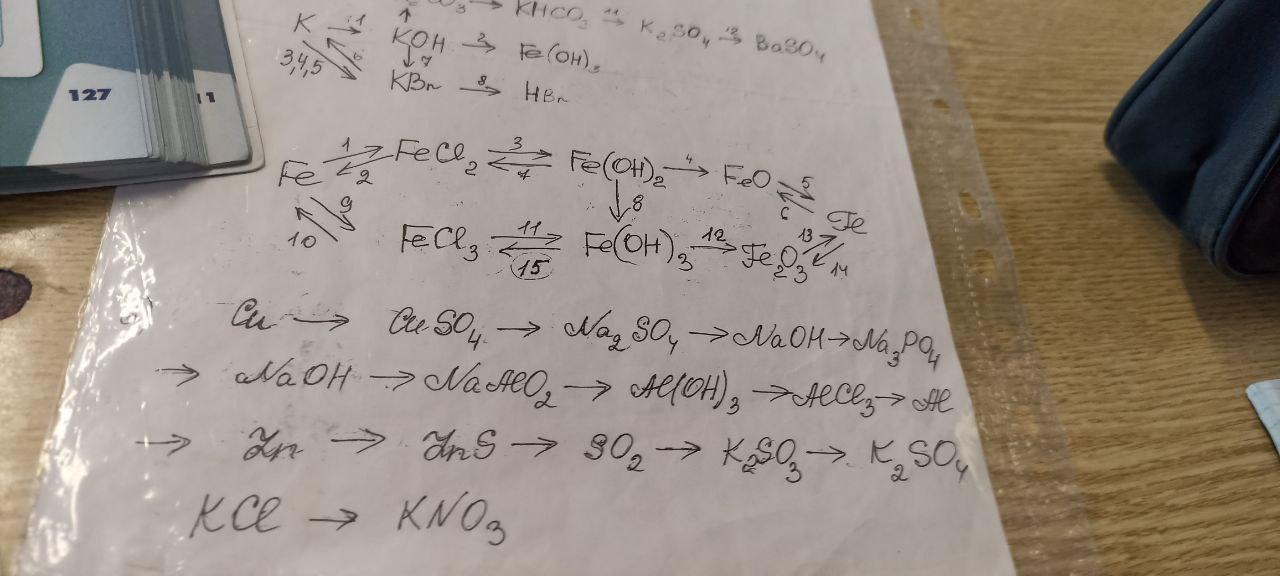 → KHCO₃ →¹¹ K₂SO₄ → BaSO₄
K →¹ KOH →² Fe(OH)₃
3,4,5 6 ↓7
KBr →⁸ HBr
127 11
Fe 1⇄2 FeCl₂ 3⇄7 Fe(OH)₂ →⁴ FeO 5⇄6 Fe
9 10 ↓8
FeCl₃ 11⇄15 Fe(OH)₃ →¹² Fe₂O₃ 13⇄14
Cu → CuSO₄ → Na₂SO₄ → NaOH → Na₃PO₄
→ NaOH → NaAlO₂ → Al(OH)₃ → AlCl₃ → Al
→ Zn → ZnS → SO₂ → K₂SO₃ → K₂SO₄
KCl → KNO₃